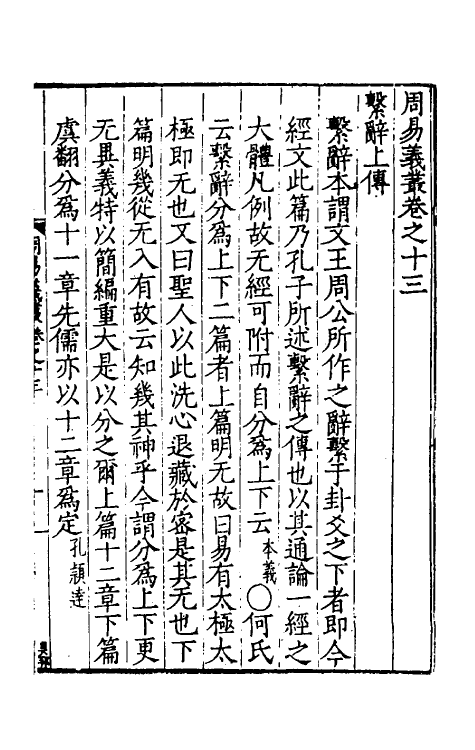 周易義叢卷之十三
繫辭上傳
繫辭本謂文王周公所作之辭繫于卦爻之下者即今
經文此篇乃孔子所述繫辭之傳也以其通論一經之
大體凡例故无經可附而自分爲上下云本義〇何氏
云繫辭分爲上下二篇者上篇明无故曰易有太極太
極即无也又曰聖人以此洗心退藏於密是其无也下
篇明幾從无入有故云知幾其神乎今謂分爲上下更
无異義特以簡編重大是以分之爾上篇十二章下篇
虞翻分爲十一章先儒亦以十二章爲定孔頴達